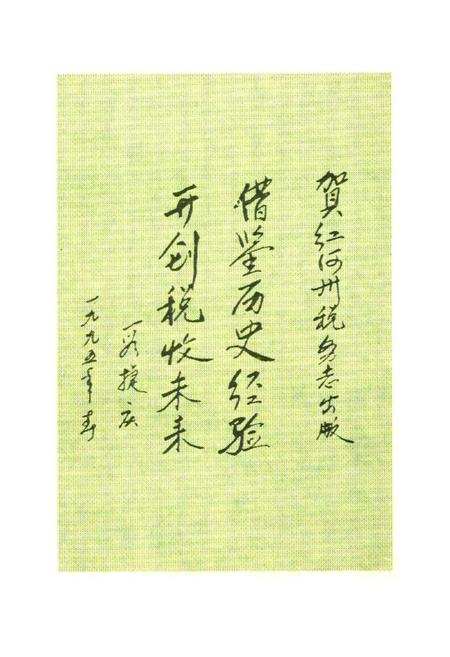 賀红河州税务志出版
借鉴历史经验
开创税收未来
捷庆
一九九五年春